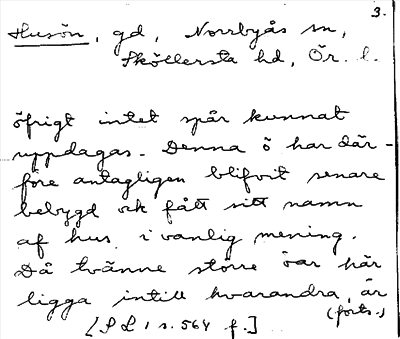 3.
Husön, gd, Norrbyås sn,
Sköllersta hd, Ör. l.
öfrigt intet spår kunnat
uppdagas. Denna ö har där-
före antagligen blifvit senare
bebygd ock fått sitt namn
af hus i vanlig mening.
Då tvänne större öar här
ligga intill hvarandra, är
(forts.)
[PL 1 s. 564 f.]